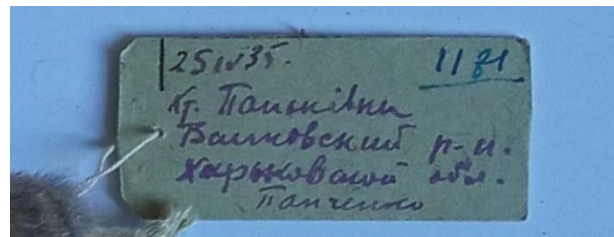 25 IV 35.
1181
хут. Паньківка
Валковский р-н.
Харьковской обл.
Панченко